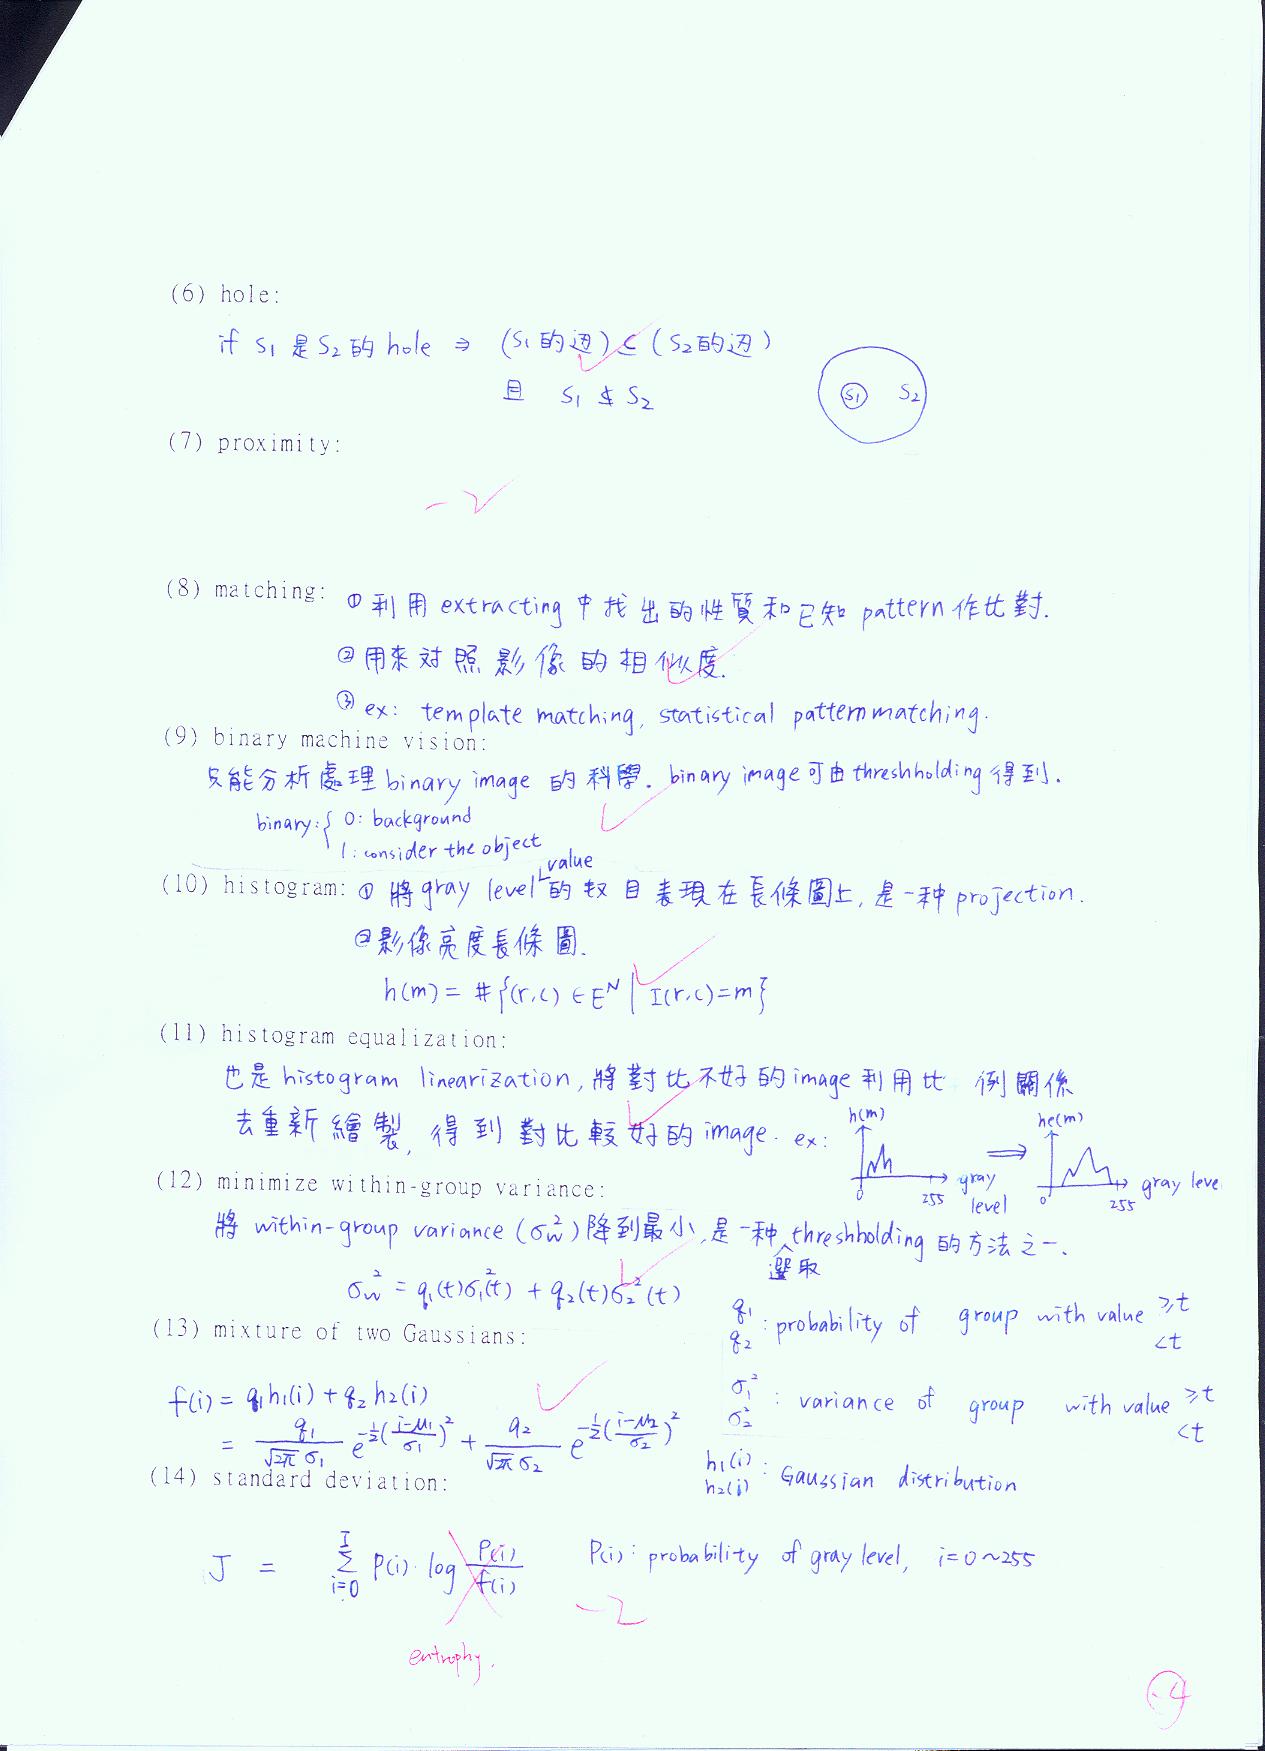 (6) hole:
if S₁ 是 S₂ 的 hole ⇒ (S₁ 的边) ⊆ (S₂ 的边)
且 S₁ ⊄ S₂
S₁ S₂
(7) proximity:
-2
(8) matching: ① 利用 extracting 中找出的性質和已知 pattern 作比對.
② 用來对照影像的相似度.
③ ex: template matching, statistical pattern matching.
(9) binary machine vision:
只能分析處理 binary image 的科學. binary image 可由 threshholding 得到.
binary: { 0: background
1: consider the object
value
(10) histogram: ① 將 gray level 的数目表現在長條圖上, 是一种 projection.
② 影像亮度長條圖.
h(m) = #{(r,c) ∈ E^N | I(r,c)=m}
(11) histogram equalization:
也是 histogram linearization, 將對比不好的 image 利用比例關係
去重新繪製, 得到對比較好的 image. ex:
h(m) 0 255 gray level ⇒ he(m) 0 255 gray leve
(12) minimize within-group variance:
將 within-group variance (σw²) 降到最小, 是一种 threshholding 的方法之一.
選取
σw² = q₁(t)σ₁²(t) + q₂(t)σ₂²(t)
q₁ q₂ : probability of group with value ≥t <t
(13) mixture of two Gaussians:
f(i) = q₁h₁(i) + q₂h₂(i)
σ₁² σ₂² : variance of group with value ≥t <t
= q₁/(√2π σ₁) e^(-½((i-μ₁)/σ₁)²) + q₂/(√2π σ₂) e^(-½((i-μ₂)/σ₂)²)
h₁(i) h₂(i) : Gaussian distribution
(14) standard deviation:
J = Σ_{i=0}^{I} P(i)·log P(i)/f(i) P(i): probability of gray level, i=0~255
-2
entrophy.
-4